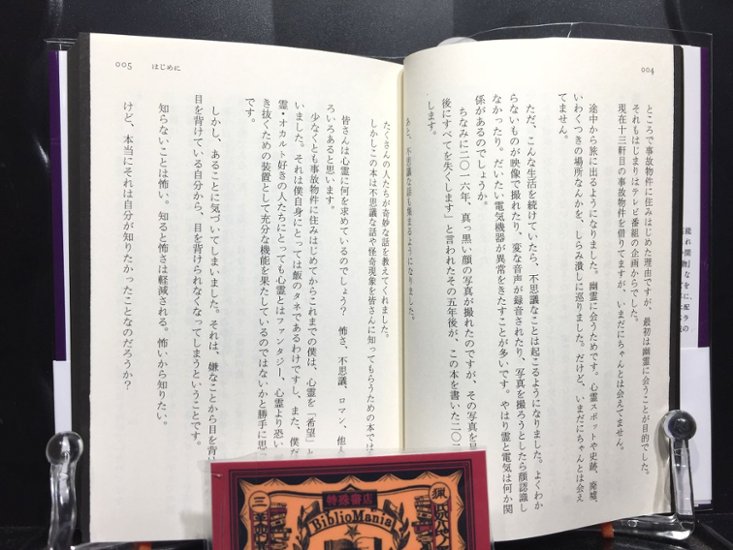 004
ところで事故物件に住みはじめた理由ですが、最初は幽霊に会うことが目的でした。
それもはじまりはテレビ番組の企画からでした。
現在十三軒目の事故物件を借りてますが、いまだにちゃんとは会えてません。
途中から旅に出るようになりました。幽霊に会うためです。心霊スポットや史跡、廃墟、
いわくつきの場所なんかを、しらみ潰しに巡りました。だけど、いまだにちゃんとは会え
てません。
ただ、こんな生活を続けていたら、不思議なことは起こるようになりました。よくわか
らないものが映像で撮れたり、変な音声が録音されたり、写真を撮ろうとしたら顔認識し
なかったり。だいたい電気機器が異常をきたすことが多いです。やはり霊と電気は何か関
係があるのでしょうか。
ちなみに二〇一六年、真っ黒い顔の写真が撮れたのですが、その写真を
後にすべてを失くします」と言われたその五年後が、この本を書いた二〇
します。
あと、不思議な話も集まるようになりました。
005
はじめに
たくさんの人たちが奇妙な話を教えてくれました。
しかしこの本は不思議な話や怪奇現象を皆さんに知ってもらうための本では
です。
皆さんは心霊に何を求めているのでしょう? 怖さ、不思議、ロマン、他人
ろいろあると思います。
少なくとも事故物件に住みはじめてからこれまでの僕は、心霊を「希望」と
いました。それは僕自身にとっては飯のタネであるわけですし、また、僕だ
霊・オカルト好きの人たちにとっても心霊とはファンタジー、心霊より恐い
き抜くための装置として充分な機能を果たしているのではないかと勝手に思
しかし、あることに気づいてしまいました。それは、嫌なことから目を背け
目を背けている自分から、目を背けられなくなってしまうということです。
知らないことは怖い。知ると怖さは軽減される。怖いから知りたい。
けど、本当にそれは自分が知りたかったことなのだろうか?
特殊書店
BiblioMania